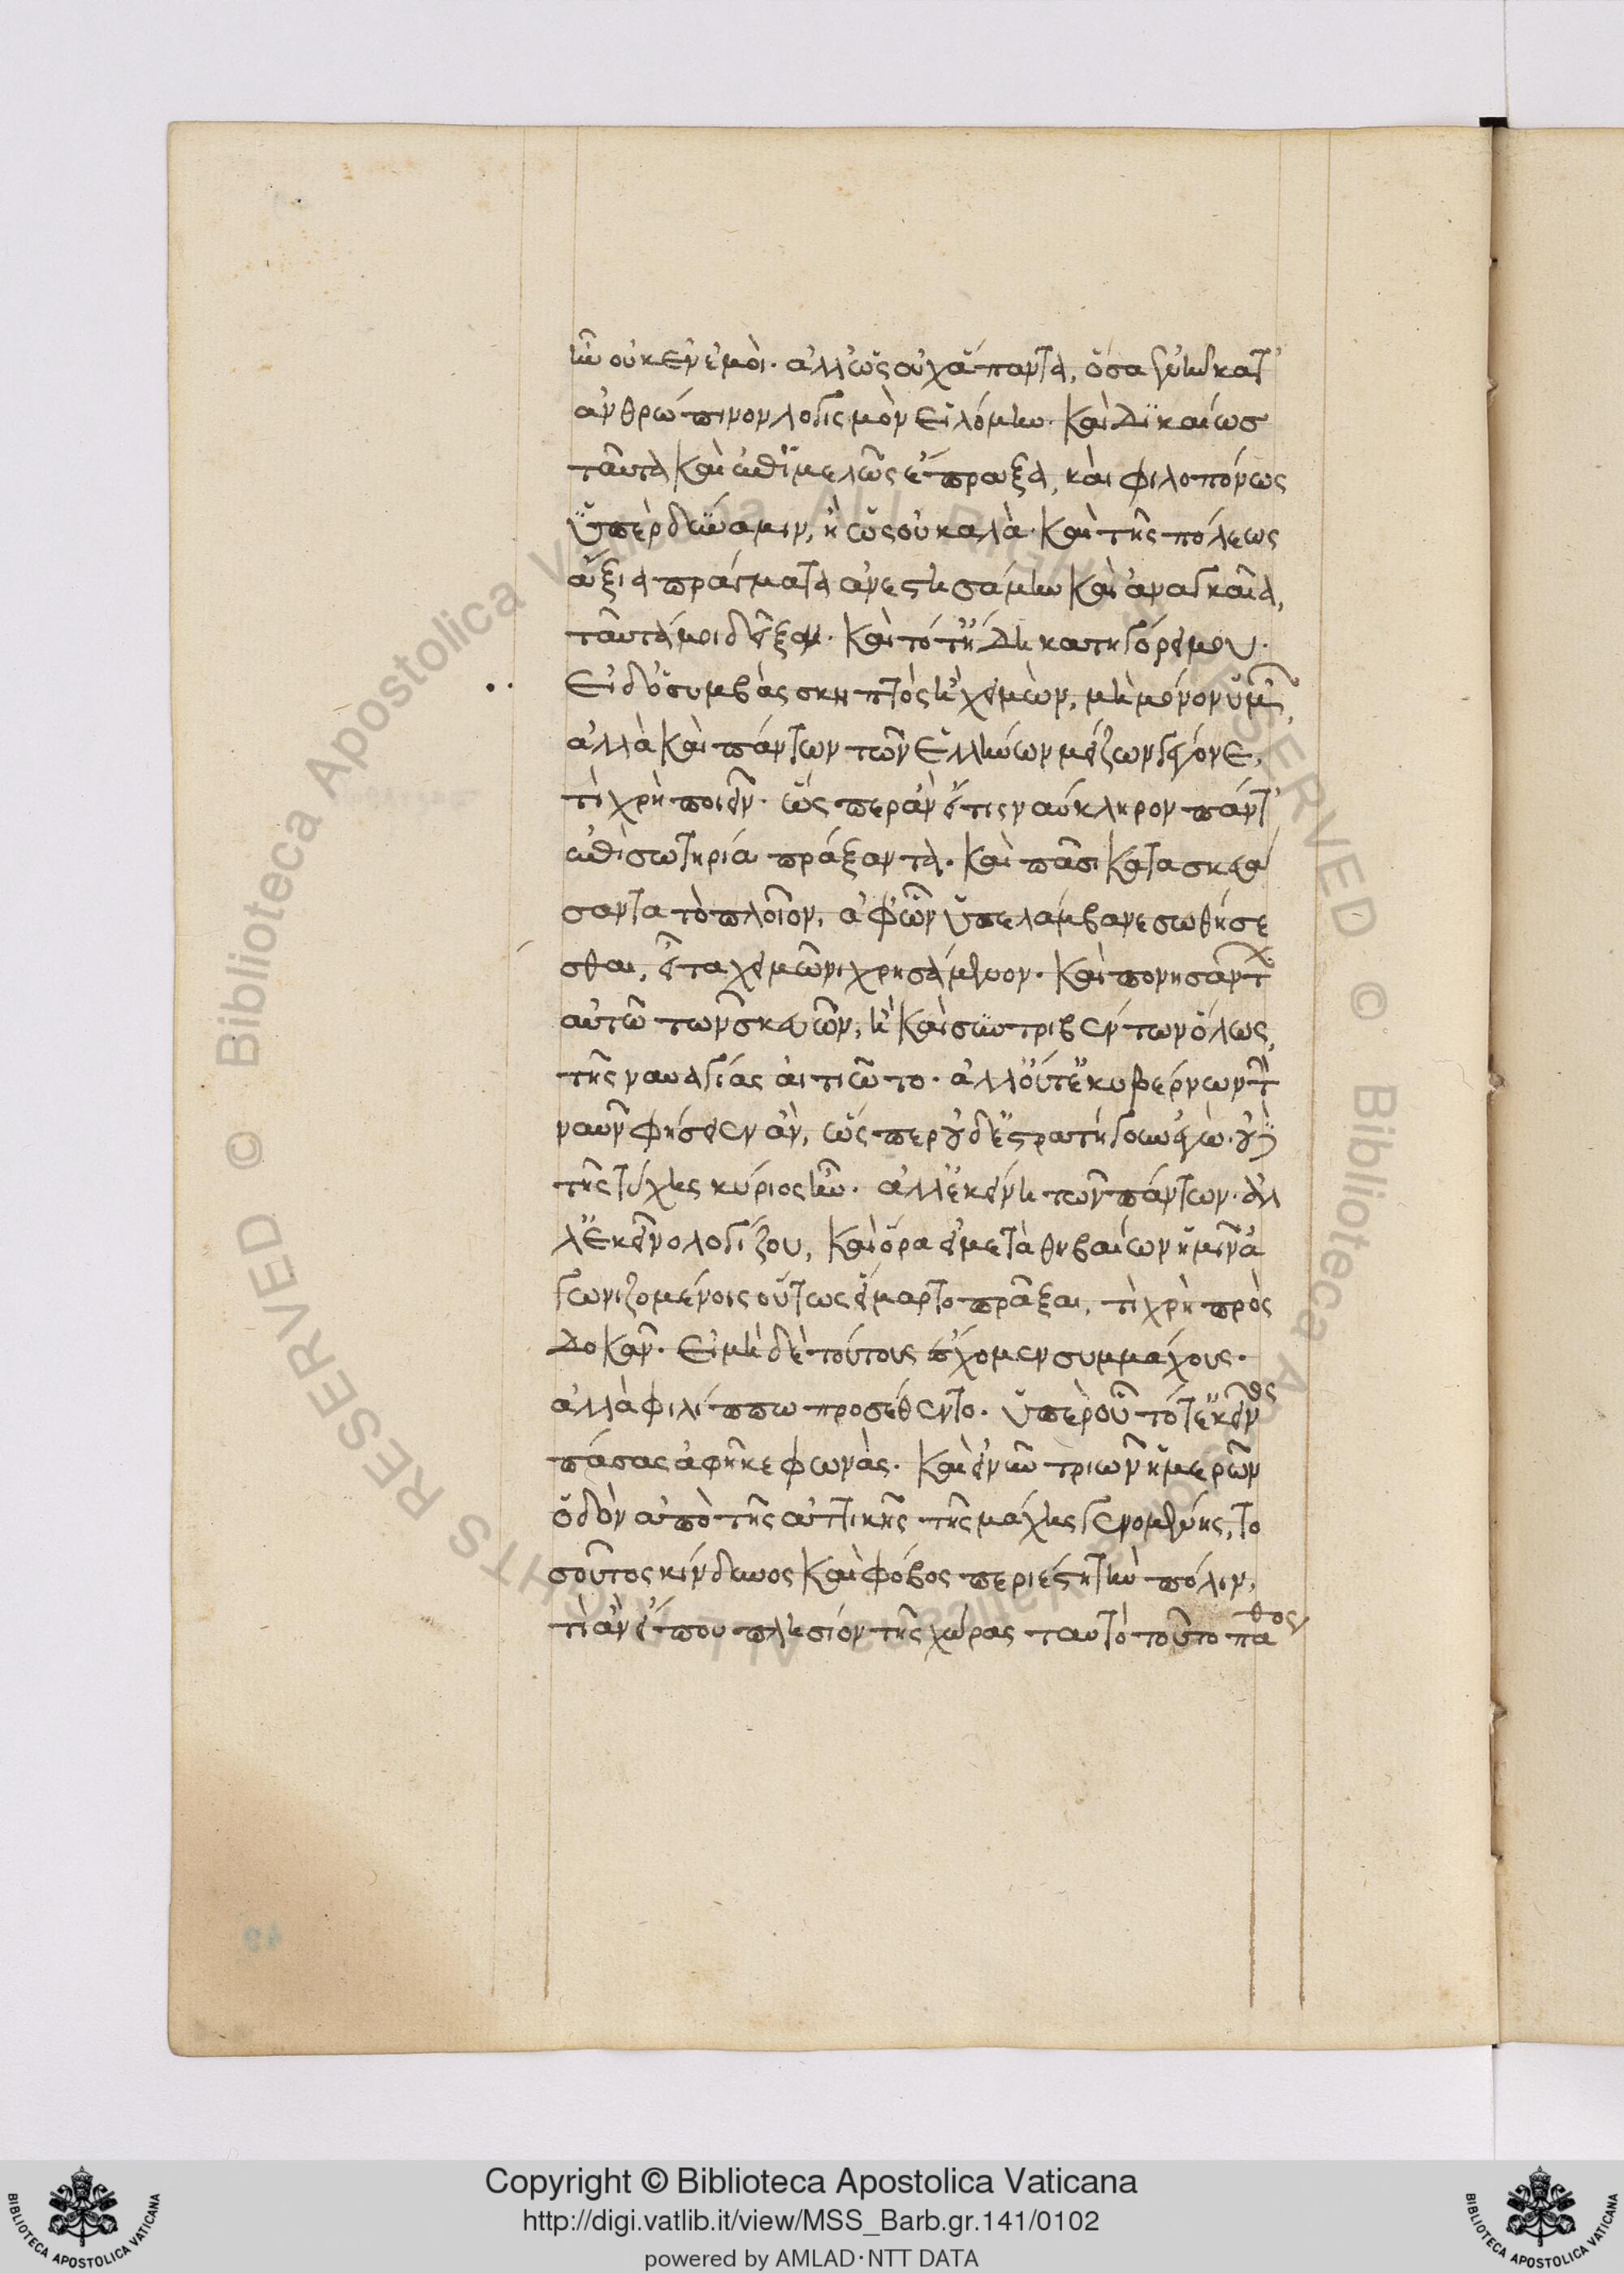 ἦν οὐκ ἐν ἐμοί. ἀλλ' ὡς οὐχ ἅπαντα, ὅσα ἐνῆν κατ'
ἀνθρώπινον λογισμὸν εἱλόμην. καὶ δικαίως
ταῦτα καὶ ἐπιμελῶς ἔπραξα, καὶ φιλοπόνως
ὑπὲρ δύναμιν, ἢ ὡς οὐ καλὰ καὶ τῆς πόλεως
ἄξια πράγματα ἀνεστησάμην καὶ ἀναγκαῖα,
ταῦτά μοι δεῖξον. καὶ τότ' ἤδη κατηγόρει μου.
εἰ δ' ὁ συμβὰς σκηπτὸς ἢ χειμὼν, μὴ μόνον ὑμῶν,
ἀλλὰ καὶ πάντων τῶν ἑλλήνων μείζων γέγονε,
τί χρὴ ποιεῖν. ὥσπερ ἂν εἴ τις ναύκληρον πάντ'
ἐπὶ σωτηρία πράξαντα. καὶ πᾶσι κατασκευά
σαντα τὸ πλοῖον, ἀφ' ὧν ὑπελάμβανε σωθήσε
σθαι, εἶτα χειμῶνι χρησάμενον. καὶ πονησάντων
αὐτῶ τῶν σκευῶν, ἢ καὶ συντριβέντων ὅλως,
τῆς ναυαγίας αἰτιῶτο. ἀλλ' οὔτ' ἐκυβέρνων τὴν
ναῦν φήσειεν ἂν, ὥσπερ οὐδ' ἐστρατήγουν ἐγὼ. οὔτε
τῆς τύχης κύριος ἦν. ἀλλ' ἐκείνη τῶν πάντων. ἀλ
λ' ἐκεῖνο λογίζου, καὶ ὅρα εἰ μετὰ θηβαίων ἡμῖν ἀ
γωνιζομένοις οὕτως εἵμαρτο πρᾶξαι, τί χρὴ πρὸς
δοκᾶν. εἰ μὴ δὲ τούτους ἔσχομεν συμμάχους.
ἀλλὰ φιλίππω προσέθεντο. ὑπὲρ οὗ τότ' ἐκεῖνος
πάσας ἀφῆκε φωνὰς. καὶ εἰ νῦν τριῶν ἡμερῶν
ὁδὸν ἀπὸ τῆς ἀττικῆς τῆς μάχης γενομένης, το
σοῦτος κίνδυνος καὶ φόβος περιέστη τὴν πόλιν,
τί ἂν εἴ που πλησίον τῆς χώρας ταυτὸ τοῦτο πάθος
Copyright © Biblioteca Apostolica Vaticana
http://digi.vatlib.it/view/MSS_Barb.gr.141/0102
powered by AMLAD·NTT DATA